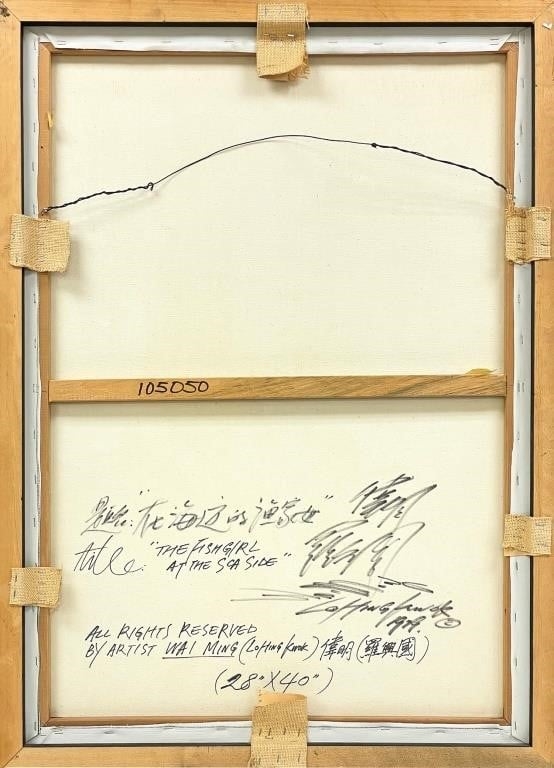 105050
題名："在海边的漁家女"
title: "THE FISHGIRL
AT THE SEA SIDE"
偉明
羅興國
Lo Hing Kwok
1979. ©
ALL RIGHTS RESERVED
BY ARTIST WAI MING (Lo Hing Kwok) 偉明 (羅興國)
(28" X 40")